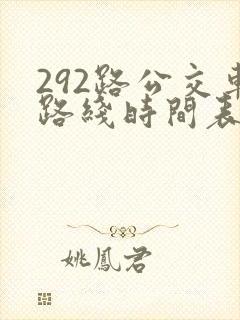 292路公交車
路綫時間表
姚鳳君